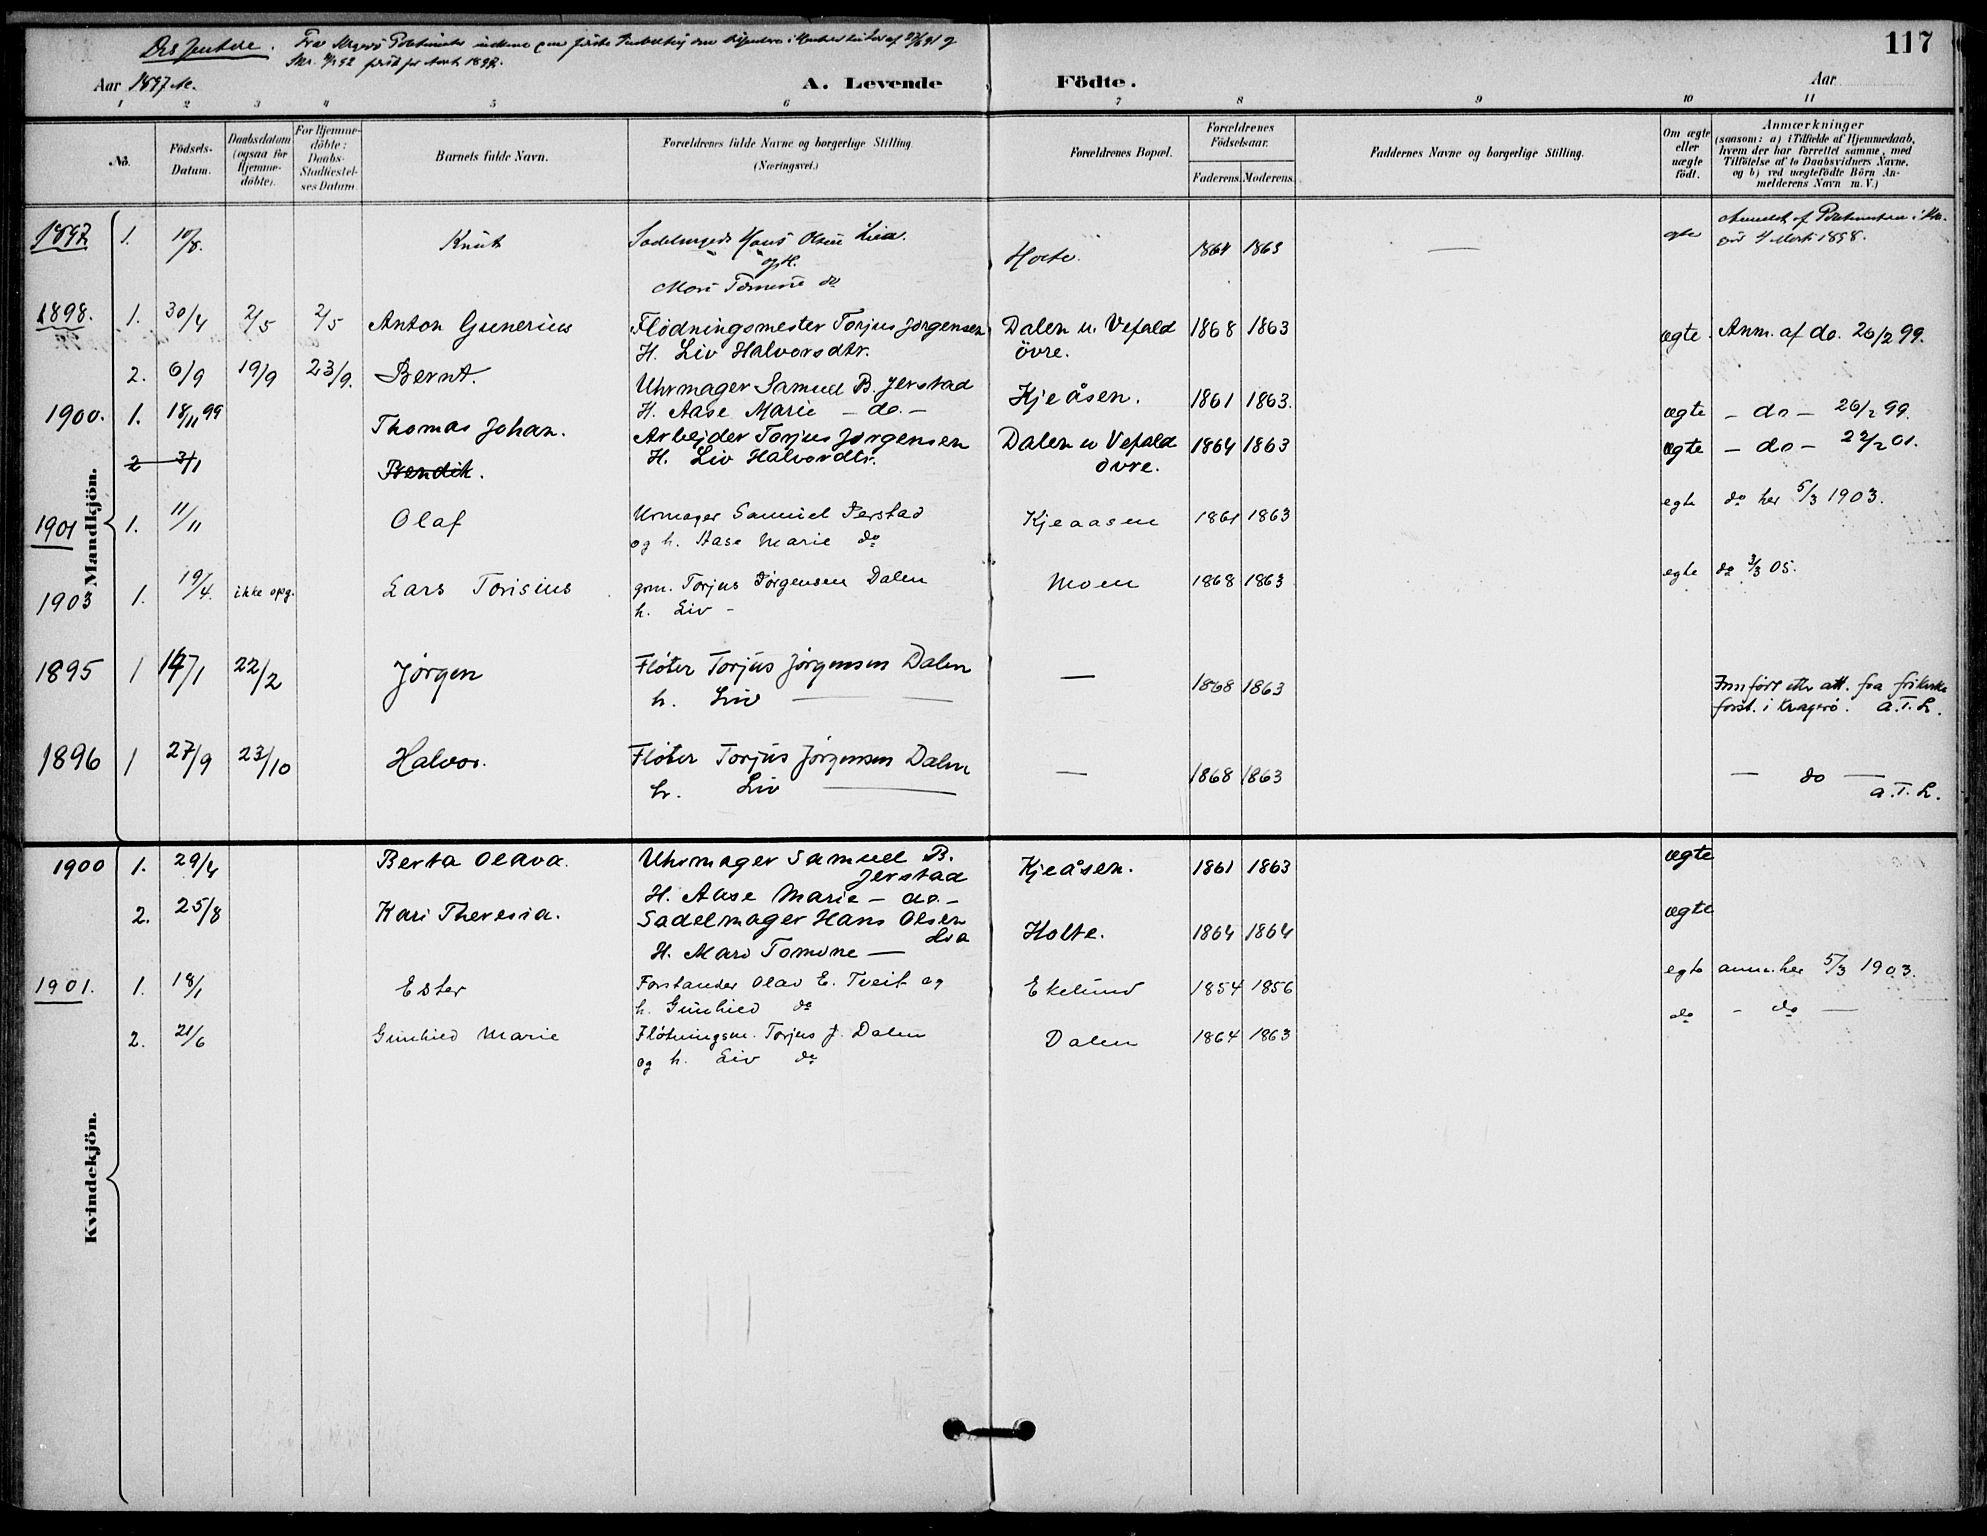 Dissentere. Fra
117
Aar 1897 A. Levende Födte. Aar
1 2 3 4 5 6 7 8 9 10 11
No.
Födsels-Datum.
Daabsdatum (ogsaa for Hjemme-döbte).
For Hjemme-döbte: Daabs-Stadfæstel-ses Datum.
Barnets fulde Navn.
Forældrenes fulde Navne og borgerlige Stilling. (Næringsvei.)
Forældrenes Bopæl.
Forældrenes Födselsaar.
Faderens. Moderens.
Faddernes Navne og borgerlige Stilling.
Om ægte eller uægte födt.
Anmærkninger
(saasom: a) i Tilfælde af Hjemmedaab,
hvem der har forrettet samme, med
Tilföielse af to Daabsvidners Navne.
og b) ved uægtefödte Börn An-
melderens Navn m. V.)
Mandkjön.
1897 1. 10/8. Knut Hans Olsen Lia. Holte. 1864 1863 — ægte
og H.
Mari Tomine do
4 Marts 1898.
1898. 1. 30/4 2/5 2/5 Anton Gunerius Flødningsmester Torjus Jørgensen Dalen u. Vefald 1868 1863 ægte. Anm. af do. 26/2 99.
H. Liv Halvorsdtr. övre.
2. 6/9 19/9 23/9. Bernt. Uhrmager Samuel B. Jerstad Kjeåsen. 1861 1863. ægte - do - 26/2 99.
H. Aase Marie - do. -
1900. 1. 18/11 99 Thomas Johan. Arbejder Torjus Jørgensen Dalen u Vefald 1864 1863 ægte - do - 22/2 01.
H. Liv Halvordtr. övre.
2 3/1 Bendik.
1901 1. 11/11 Olaf Urmager Samuel Jerstad Kjeaasen 1861 1863 egte do her 5/3 1903.
og h. Aase Marie do
1903 1. 19/4. ikke opg. Lars Torisius grm. Torjus Jørgensen Dalen Moen 1868 1863 egte do 3/3 05.
h. Liv -
1895 1 14/1 22/2 Jørgen Fløter Torjus Jørgensen Dalen — 1868 1863 Innført etter att. fra frikirke
h. Liv — forst. i Kragerø. A.T.L.
1896 1 27/9 23/10 Halvor. Fløter Torjus Jørgensen Dalen — 1868 1863 — do —
h. Liv — A.T.L.
Kvindekjön.
1900 1. 29/4 Berta Olava. Uhrmager Samuel B. Jerstad Kjeåsen. 1861 1863 ægte
H. Aase Marie - do. -
2. 25/8 Kari Theresia. Sadelmager Hans Olsen Lia Holte. 1864 1864 ægte
H. Mari Tomine —
1901. 1. 18/1 Ester Forstander Olav E. Tveit og Ekelund 1854 1856 egte anm. her 5/3 1903.
h. Gunhild do
2. 21/6 Gunhild Marie Fløtningsm. Torjus J. Dalen Dalen 1864 1863 do - do —
og h. Liv do